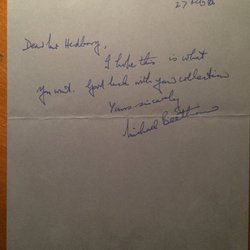 27 Feb
Dear Mr Hedborg,
I hope this is what
you want. Good luck with your collection
Yours sincerely
Michael